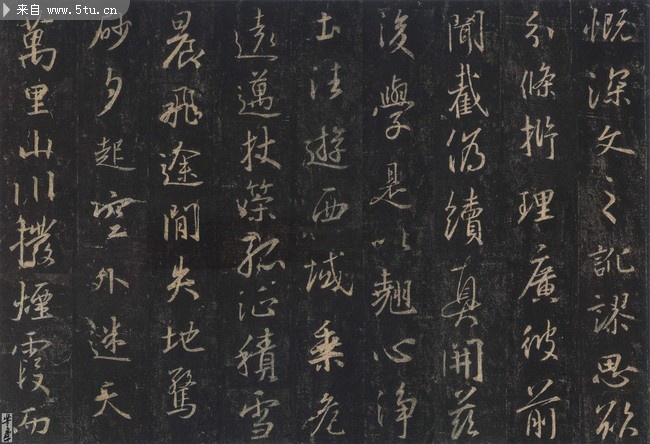 来自 www.5tu.cn
慨深文之訛謬思欲
分條析理廣彼前
聞截偽續真開茲
後學是以翹心淨
土法遊西域乘危
遠邁杖策孤征積雪
晨飛途間失地驚
砂夕起空外迷天
萬里山川撥煙霞而